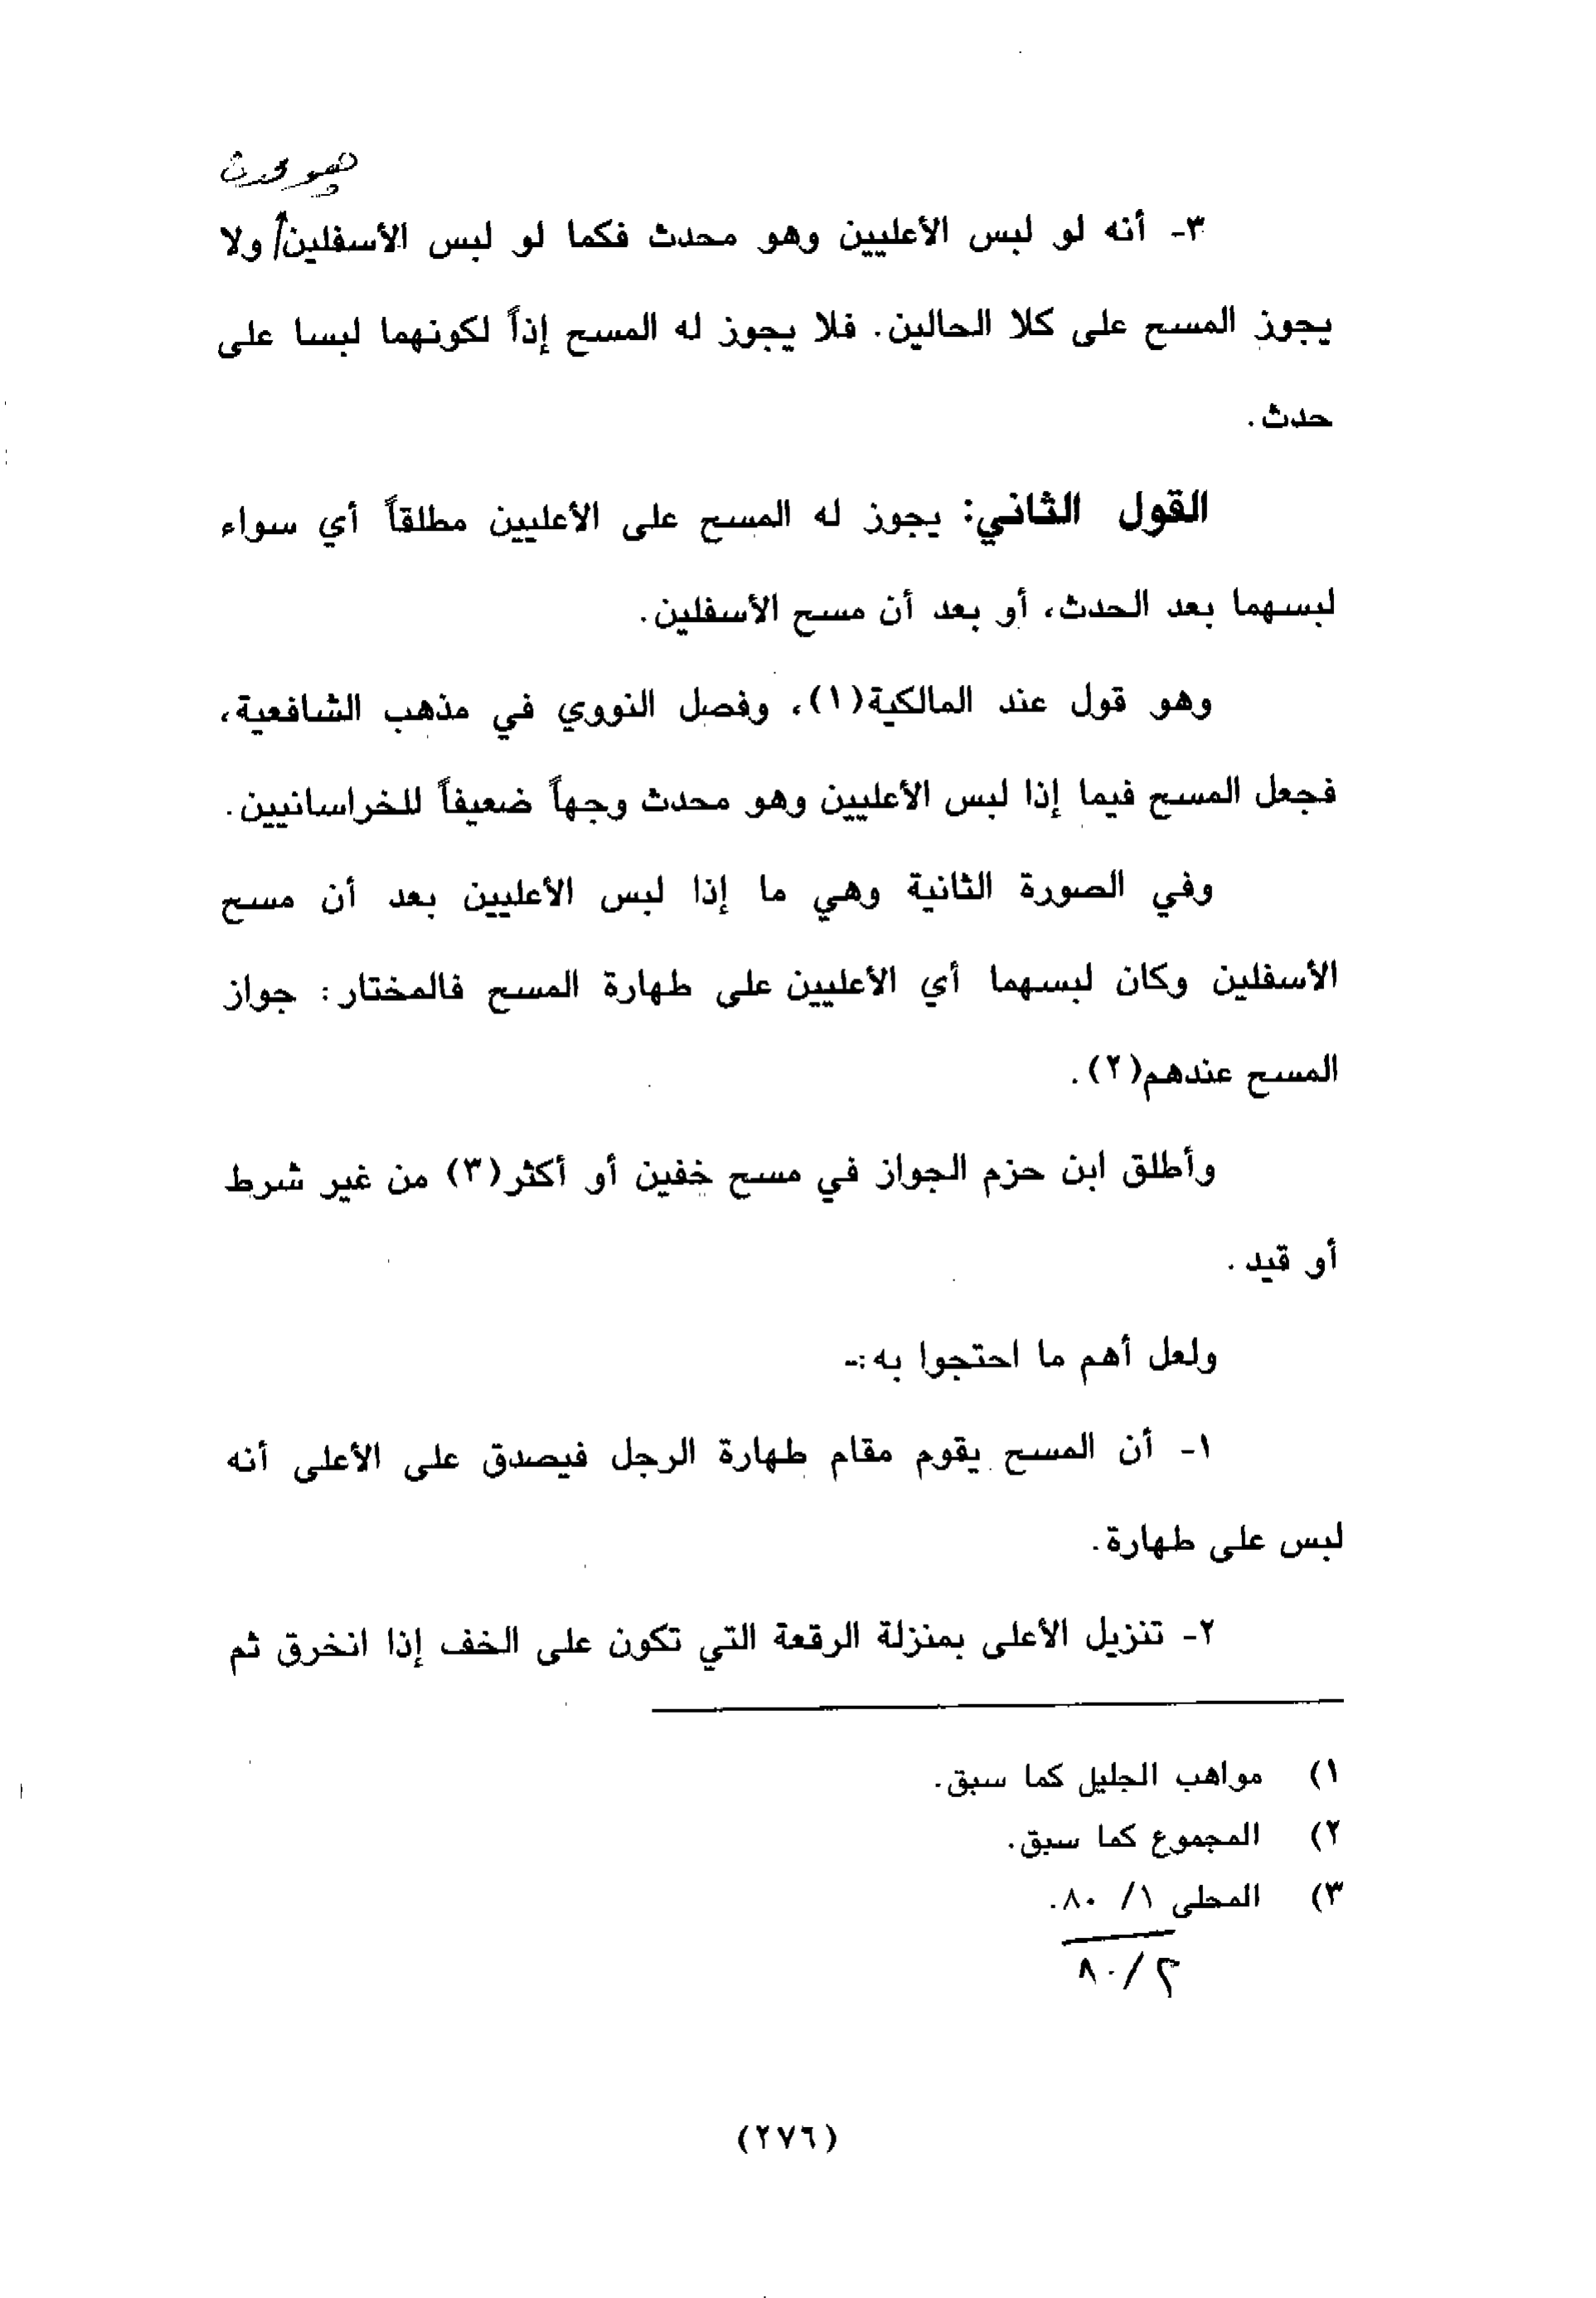 وهو محدث
٣- أنه لو لبس الأعليين وهو محدث فكما لو لبس الأسفلين/ ولا
يجوز المسح على كلا الحالين. فلا يجوز له المسح إذاً لكونهما لبسا على
حدث.
القول الثاني: يجوز له المسح على الأعليين مطلقاً أي سواء
لبسهما بعد الحدث، أو بعد أن مسح الأسفلين.
وهو قول عند المالكية(١)، وفصل النووي في مذهب الشافعية،
فجعل المسح فيما إذا لبس الأعليين وهو محدث وجهاً ضعيفاً للخراسانيين.
وفي الصورة الثانية وهي ما إذا لبس الأعليين بعد أن مسح
الأسفلين وكان لبسهما أي الأعليين على طهارة المسح فالمختار: جواز
المسح عندهم(٢).
وأطلق ابن حزم الجواز في مسح خفين أو أكثر(٣) من غير شرط
أو قيد.
ولعل أهم ما احتجوا به:-
١- أن المسح يقوم مقام طهارة الرجل فيصدق على الأعلى أنه
لبس على طهارة.
٢- تنزيل الأعلى بمنزلة الرقعة التي تكون على الخف إذا انخرق ثم
١) مواهب الجليل كما سبق.
٢) المجموع كما سبق.
٣) المحلى ١/ ٨٠.
٢/٨٠
(٢٧٦)